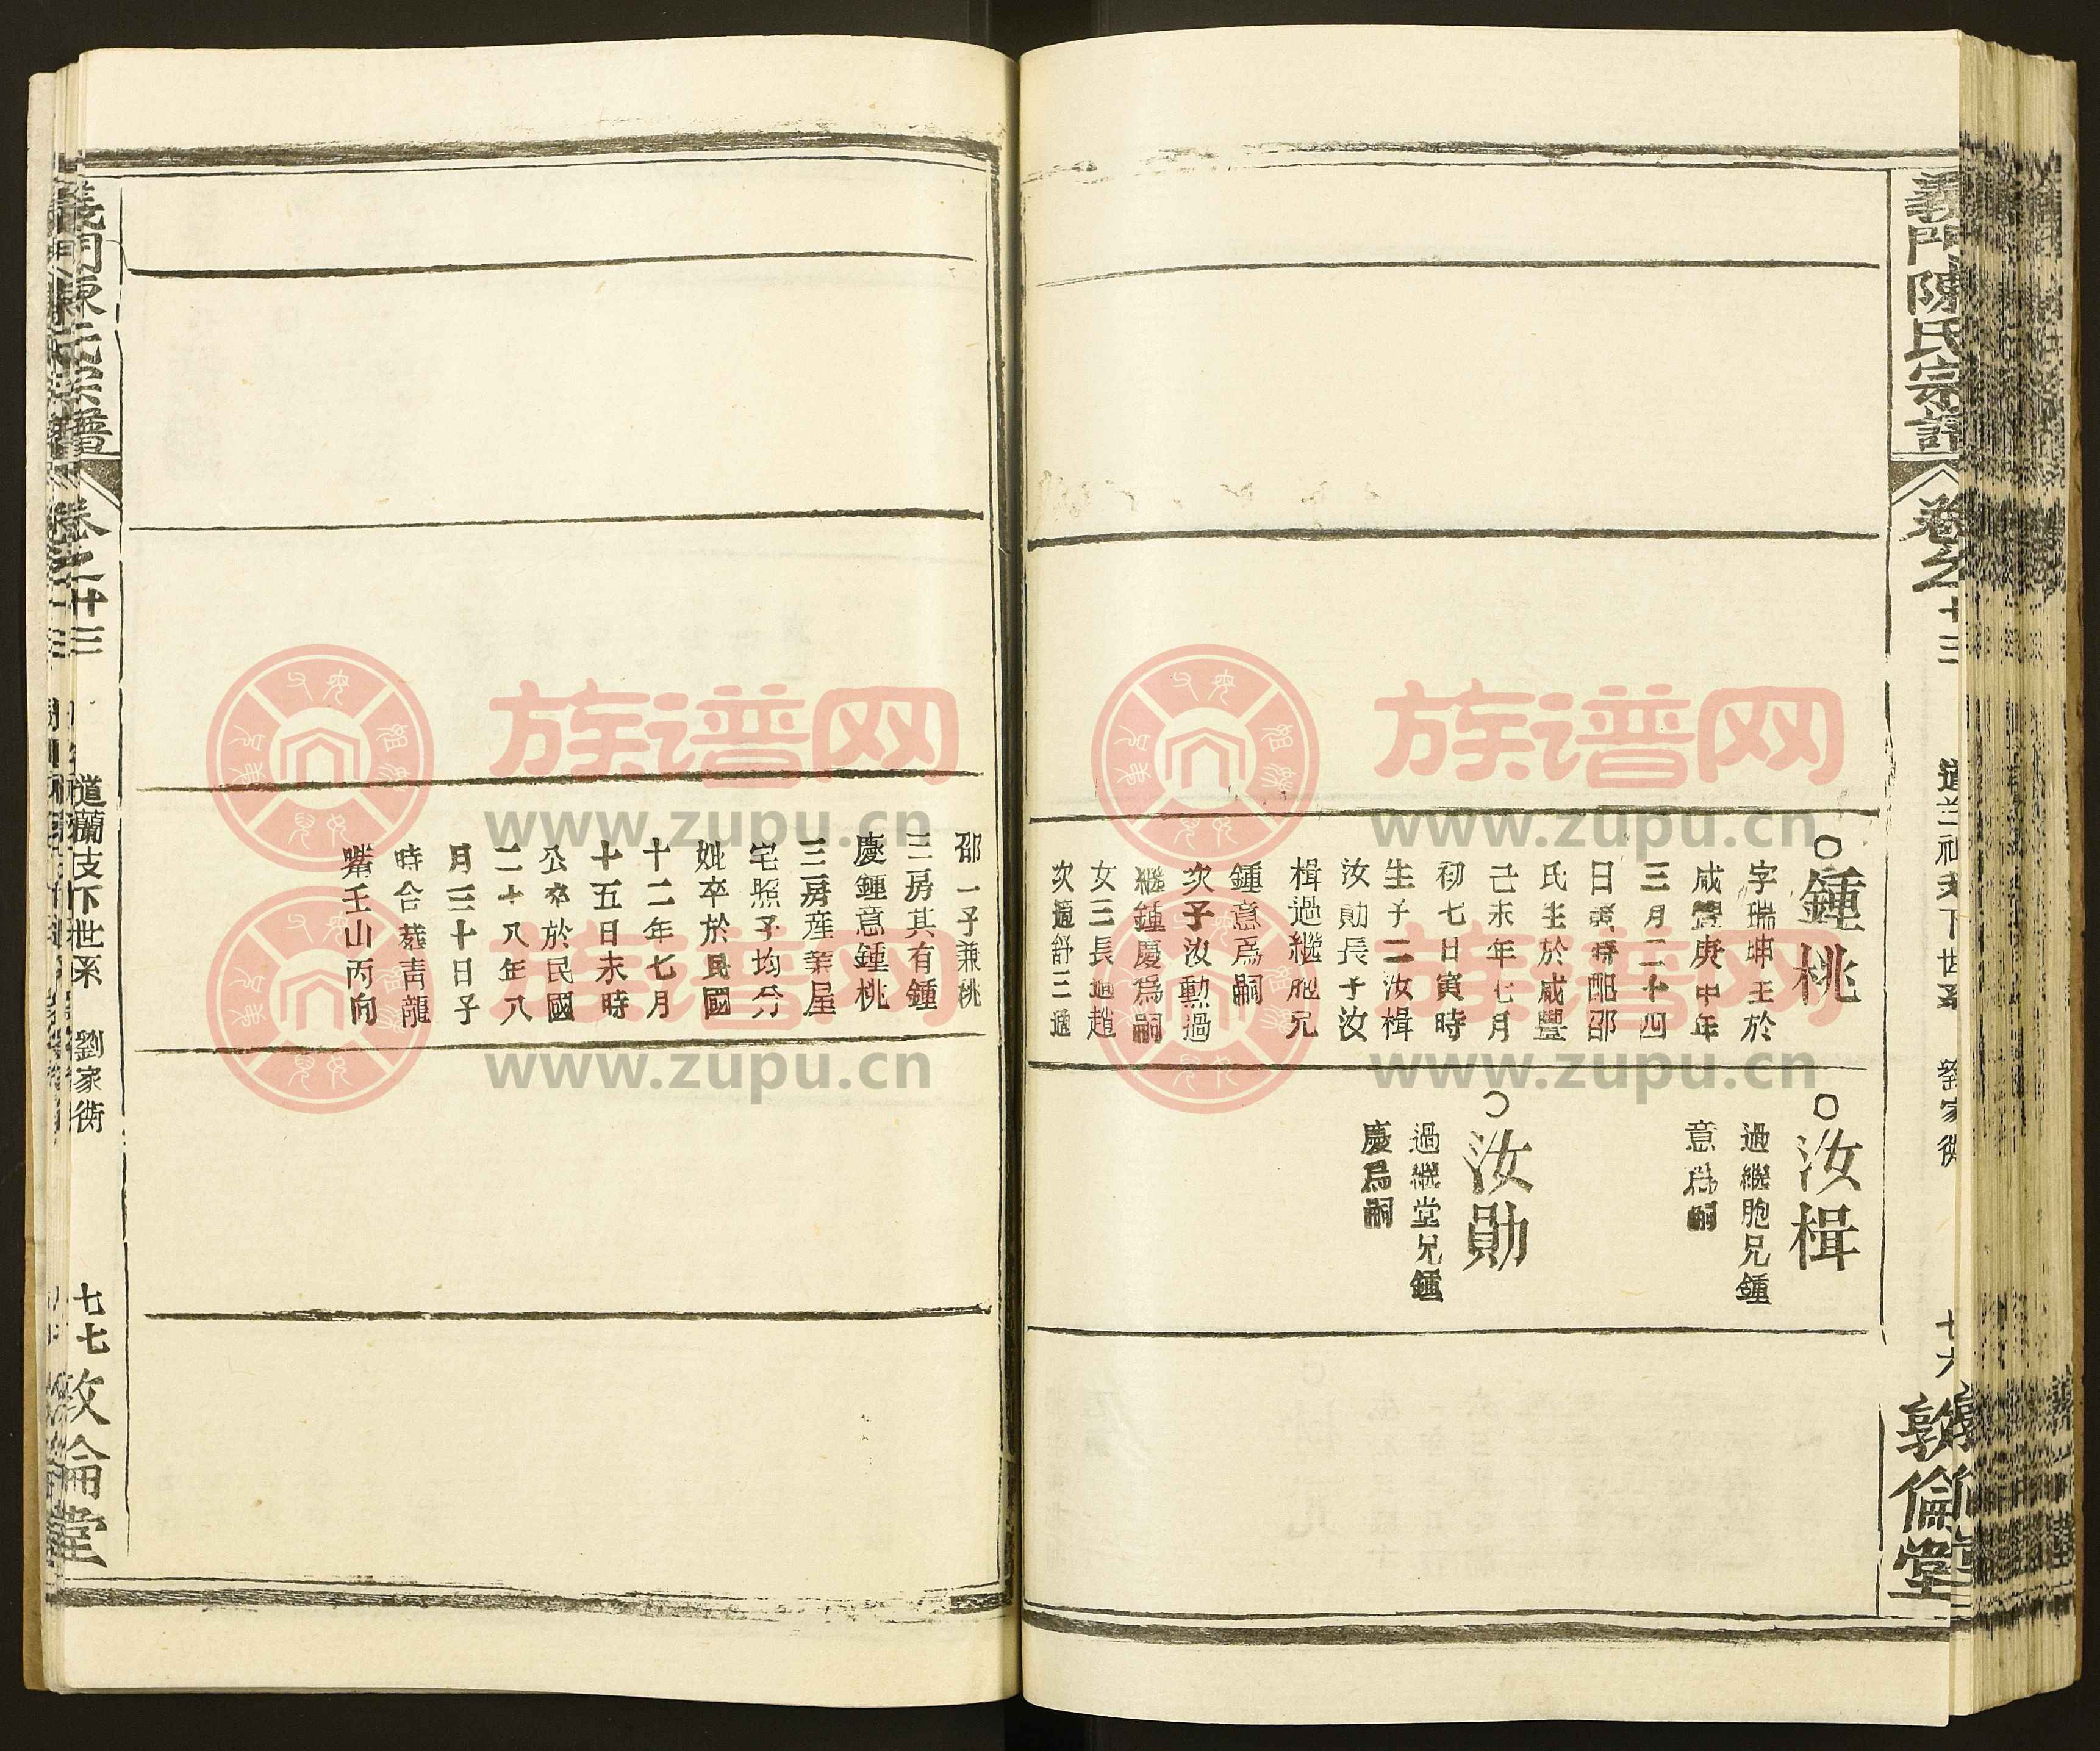 義門陳氏宗譜
卷之十三
劉家衖
七六
敦倫堂
○鍾桃
字瑞坤生於
咸豐庚申年
三月二十四
日寅時配邵
氏生於咸豐
己未年七月
初七日寅時
生子二汝楫
汝勛長子汝
楫過繼胞兄
鍾意爲嗣
次子汝勲過
繼鍾慶爲嗣
女三長適趙
次適舒三適
○汝楫
過繼胞兄鍾
意爲嗣
○汝勛
過繼堂兄鍾
慶爲嗣
邵一子兼祧
三房其有鍾
慶鍾意鍾桃
三房產業屋
宅照子均分
妣卒於民國
十二年七月
十五日未時
公卒於民國
二十八年八
月三十日子
時合葬青龍
嘴壬山丙向
義門陳氏宗譜
卷之十三
道蘭支下世系
劉家衖
七七
敦倫堂
族谱网
www.zupu.cn
族谱网
www.zupu.cn
族谱网
www.zupu.cn
族谱网
www.zupu.cn